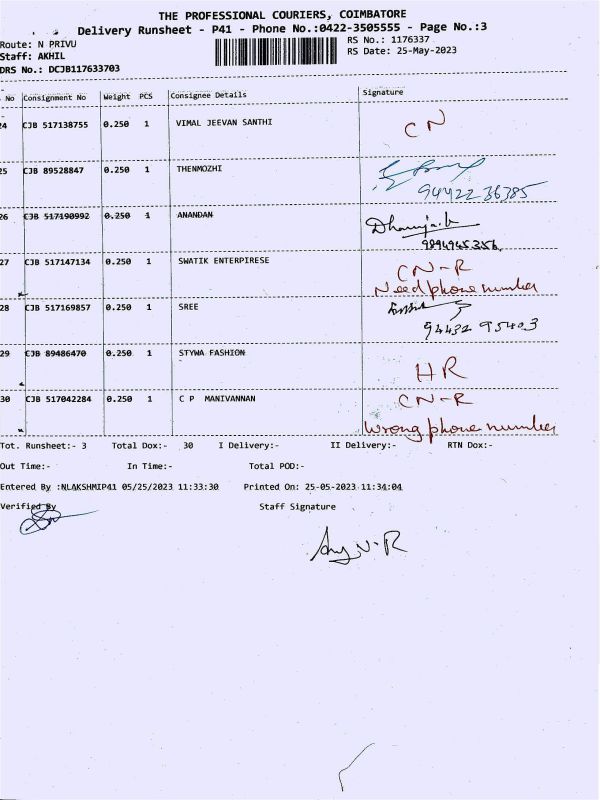 THE PROFESSIONAL COURIERS, COIMBATORE
Delivery Runsheet - P41 - Phone No.:0422-3505555 - Page No.:3
Route: N PRIVU
RS No.: 1176337
Staff: AKHIL
RS Date: 25-May-2023
DRS No.: DCJB117633703
No Consignment No Weight PCS Consignee Details Signature
24 CJB 517138755 0.250 1 VIMAL JEEVAN SANTHI CN
25 CJB 89528847 0.250 1 THENMOZHI
94422 36385
26 CJB 517190992 0.250 1 ANANDAN
9894945356
27 CJB 517147134 0.250 1 SWATIK ENTERPIRESE CN-R
Need phone number
28 CJB 517169857 0.250 1 SREE
94432 95403
29 CJB 89486470 0.250 1 STYWA FASHION HR
30 CJB 517042284 0.250 1 C P MANIVANNAN CN-R
Wrong phone number
Tot. Runsheet:- 3 Total Dox:- 30 I Delivery:- II Delivery:- RTN Dox:-
Out Time:- In Time:- Total POD:-
Entered By :NLAKSHMIP41 05/25/2023 11:33:30 Printed On: 25-05-2023 11:34:04
Verified By Staff Signature